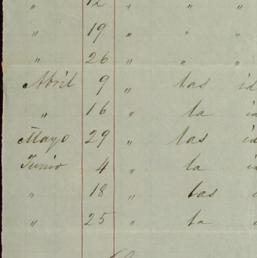 " 12 "
" 19 " " "
" 26 " " "
Abril 9 " las id
" 16 " la id
Mayo 29 " las id
Junio 4 " la id
" 18 " las
" 25 " la "